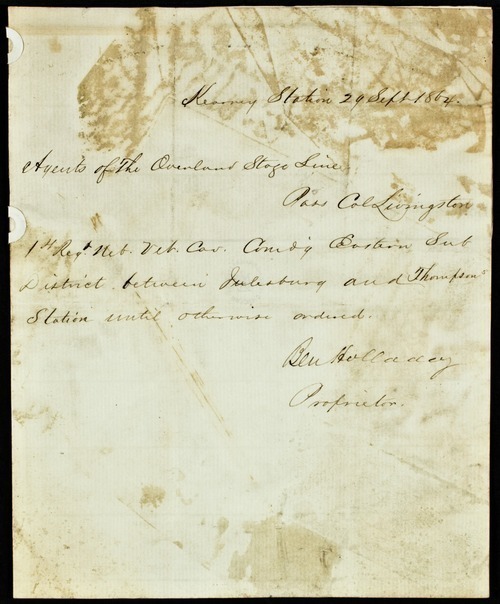 Kearney Station 29 Sept 1864.
Agents of The Overland Stage Line
Pass Col Livingston
1st Regt Neb. Vet. Cav. Comdg Eastern Sub
District between Julesburg and Thompsons
Station until otherwise ordered.
Ben Holladay
Proprietor.